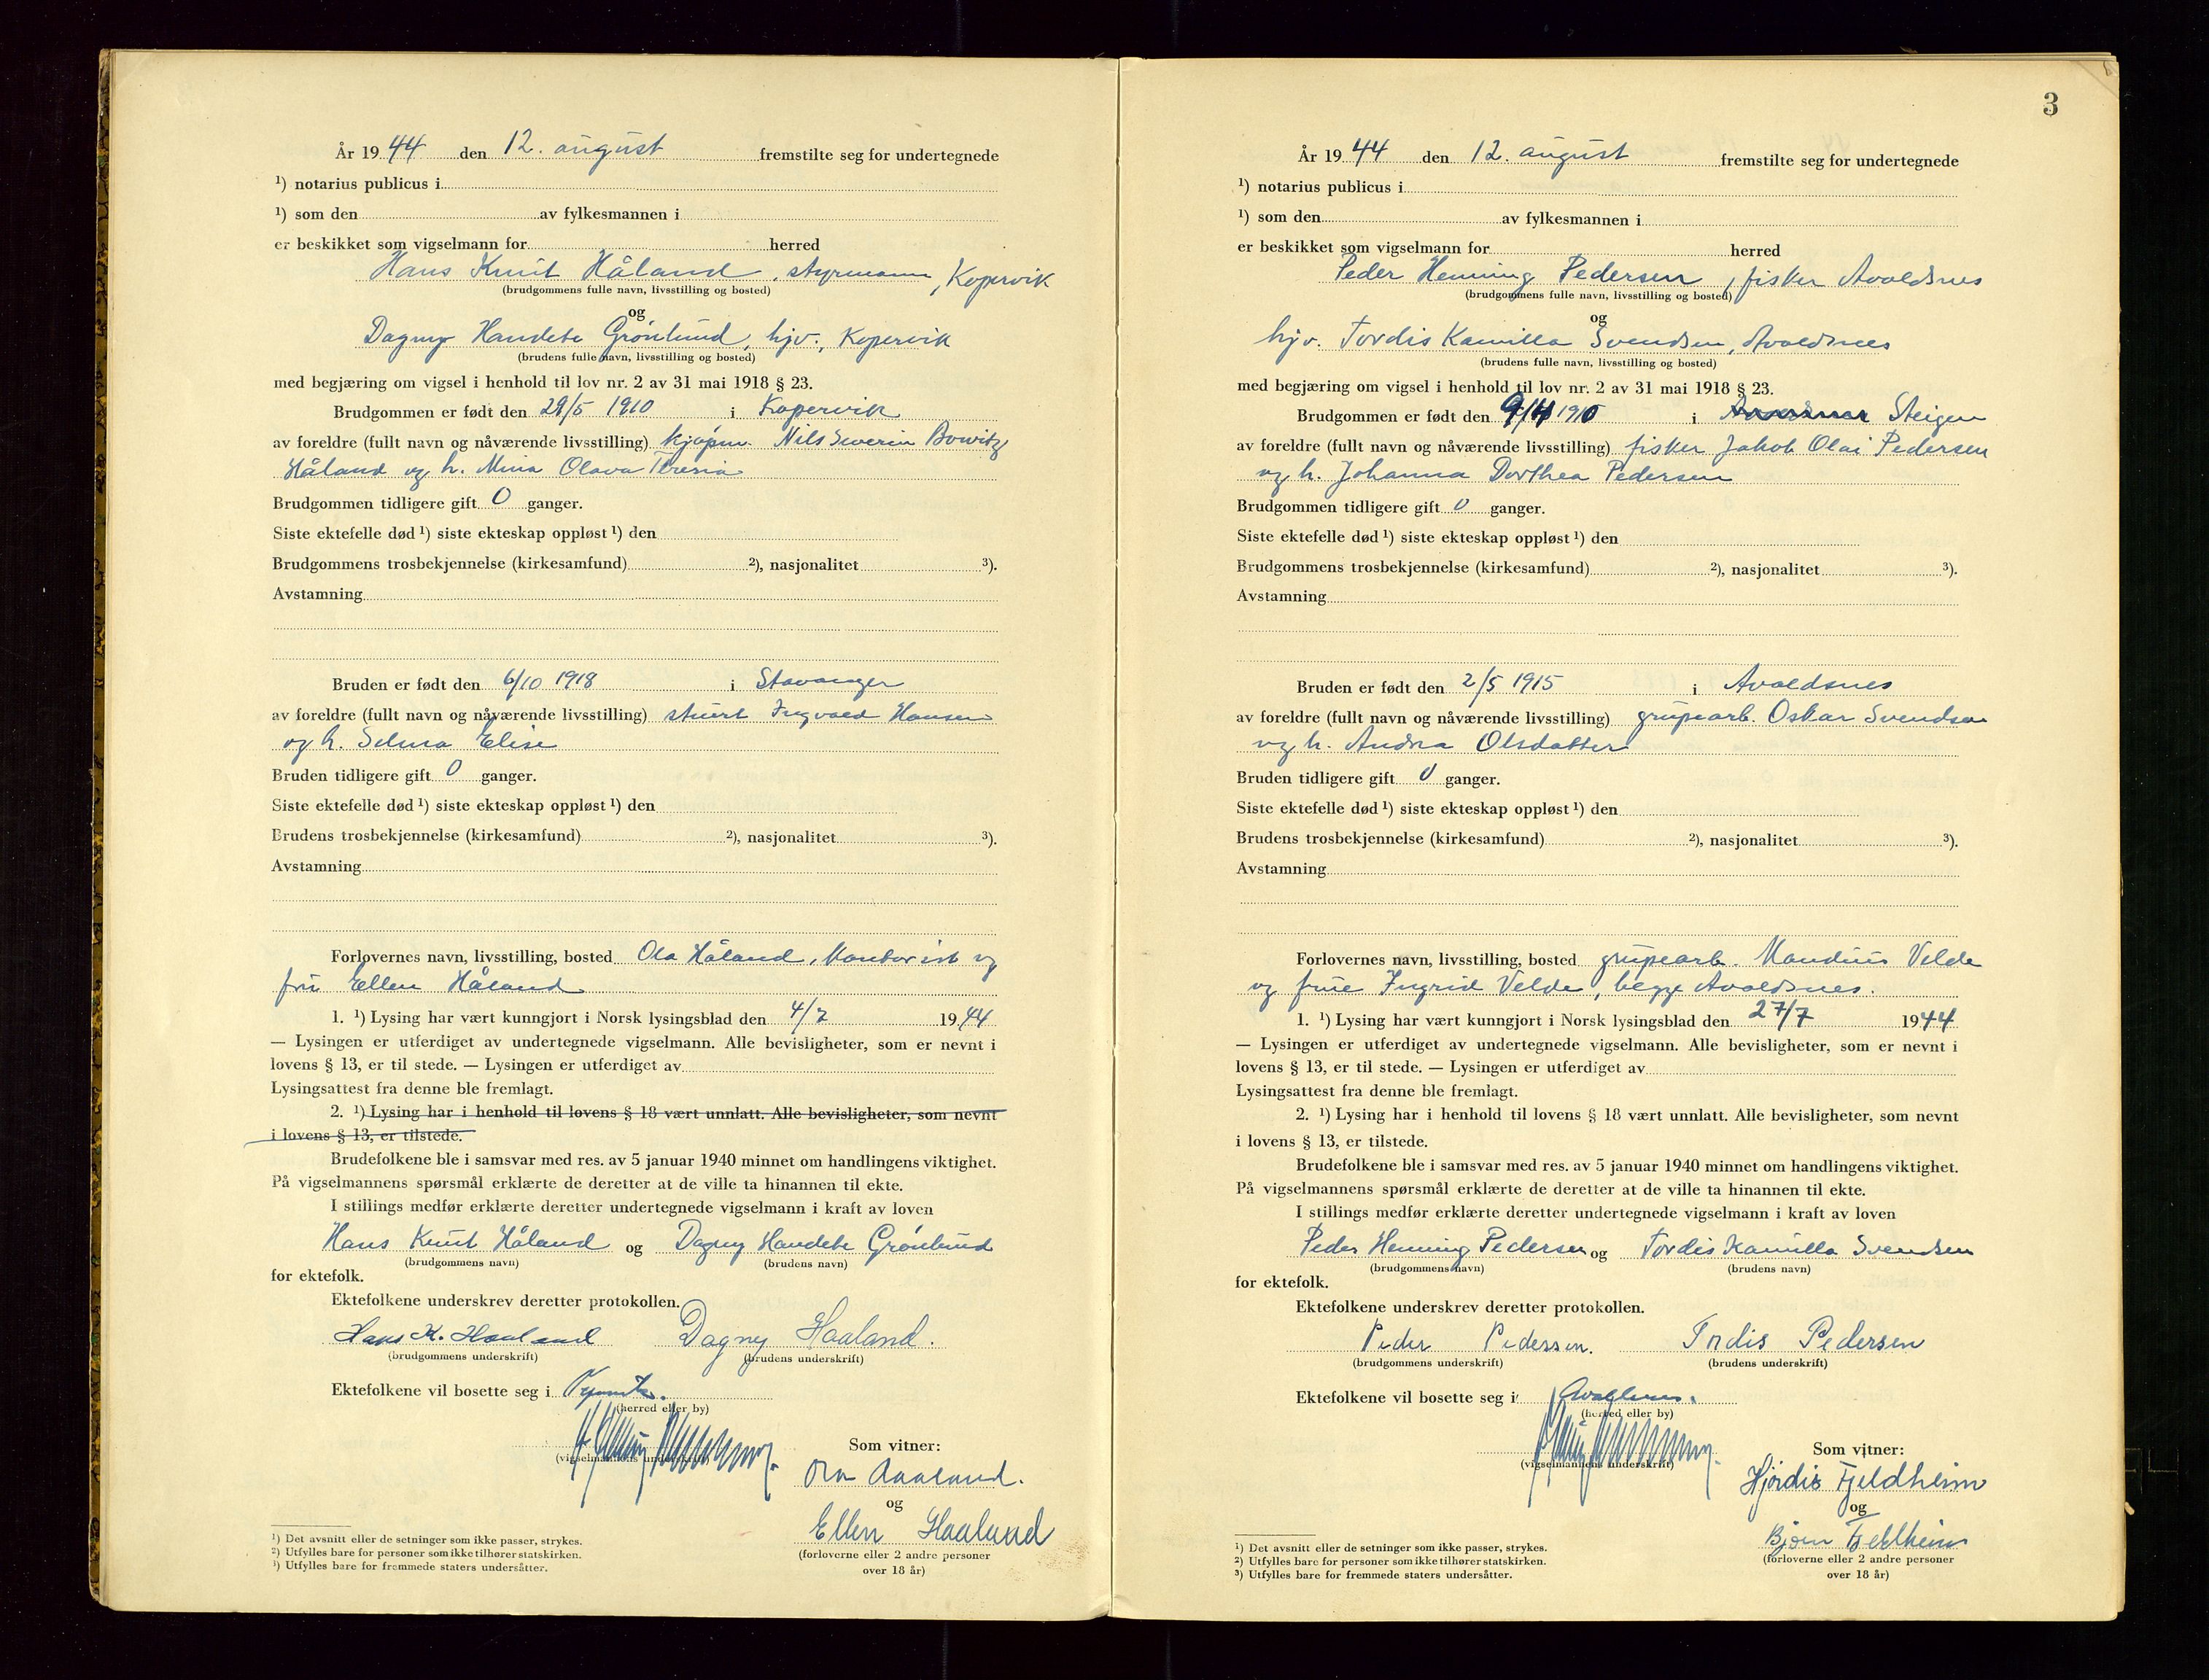 År 19 44 den 12. august fremstilte seg for undertegnede
¹) notarius publicus i
¹) som den av fylkesmannen i
er beskikket som vigselmann for herred
Hans Knut Håland, styrmann, Kopervik
(brudgommens fulle navn, livsstilling og bosted)
og
Dagny Handete Grönlund, hjv., Kopervik
(brudens fulle navn, livsstilling og bosted)
med begjæring om vigsel i henhold til lov nr. 2 av 31 mai 1918 § 23.
Brudgommen er født den 29/5 1910 i Kopervik
av foreldre (fullt navn og nåværende livsstilling) kjøpm. Nils Severin Bowitz
Håland og h. Mina Olava Teresia
Brudgommen tidligere gift 0 ganger.
Siste ektefelle død ¹) siste ekteskap oppløst ¹) den
Brudgommens trosbekjennelse (kirkesamfund) ²), nasjonalitet ³).
Avstamning
Bruden er født den 6/10 1918 i Stavanger
av foreldre (fullt navn og nåværende livsstilling) stuert Ingvald Hansen
og h. Selma Elise
Bruden tidligere gift 0 ganger.
Siste ektefelle død ¹) siste ekteskap oppløst ¹) den
Brudens trosbekjennelse (kirkesamfund) ²), nasjonalitet ³).
Avstamning
Forlovernes navn, livsstilling, bosted Ola Håland, kontorist og
fru Ellen Håland
1. ¹) Lysing har vært kunngjort i Norsk lysingsblad den 4/7 19 44
— Lysingen er utferdiget av undertegnede vigselmann. Alle bevisligheter, som er nevnt i
lovens § 13, er til stede. — Lysingen er utferdiget av
Lysingsattest fra denne ble fremlagt.
2. ¹) Lysing har i henhold til lovens § 18 vært unnlatt. Alle bevisligheter, som nevnt
i lovens § 13, er tilstede.
Brudefolkene ble i samsvar med res. av 5 januar 1940 minnet om handlingens viktighet.
På vigselmannens spørsmål erklærte de deretter at de ville ta hinannen til ekte.
I stillings medfør erklærte deretter undertegnede vigselmann i kraft av loven
Hans Knut Håland og Dagny Handete Grönlund
(brudgommens navn) (brudens navn)
for ektefolk.
Ektefolkene underskrev deretter protokollen.
Hans K. Haaland Dagny Haaland.
(brudgommens underskrift) (brudens underskrift)
Ektefolkene vil bosette seg i
(herred eller by)
(vigselmannens underskrift)
Som vitner:
Ola Haaland.
og
Ellen Haaland
(forloverne eller 2 andre personer
over 18 år)
¹) Det avsnitt eller de setninger som ikke passer, strykes.
²) Utfylles bare for personer som ikke tilhører statskirken.
³) Utfylles bare for fremmede staters undersåtter.
3
År 19 44 den 12. august fremstilte seg for undertegnede
¹) notarius publicus i
¹) som den av fylkesmannen i
er beskikket som vigselmann for herred
Peder Henning Pedersen, fisker Avaldsnes
(brudgommens fulle navn, livsstilling og bosted)
og
hjv. Tordis Kamilla Svendsen, Avaldsnes
(brudens fulle navn, livsstilling og bosted)
med begjæring om vigsel i henhold til lov nr. 2 av 31 mai 1918 § 23.
Brudgommen er født den 9/4 1910 i Steigen
av foreldre (fullt navn og nåværende livsstilling) fisker Jakob Olai Pedersen
og h. Johanna Dorthea Pedersen
Brudgommen tidligere gift 0 ganger.
Siste ektefelle død ¹) siste ekteskap oppløst ¹) den
Brudgommens trosbekjennelse (kirkesamfund) ²), nasjonalitet ³).
Avstamning
Bruden er født den 2/5 1915 i Avaldsnes
av foreldre (fullt navn og nåværende livsstilling) grupearb. Oskar Svendsen
og h. Andra Olsdatter
Bruden tidligere gift 0 ganger.
Siste ektefelle død ¹) siste ekteskap oppløst ¹) den
Brudens trosbekjennelse (kirkesamfund) ²), nasjonalitet ³).
Avstamning
Forlovernes navn, livsstilling, bosted grupearb. Mandius Velde
og frue Ingrid Velde, begge Avaldsnes.
1. ¹) Lysing har vært kunngjort i Norsk lysingsblad den 27/7 19 44
— Lysingen er utferdiget av undertegnede vigselmann. Alle bevisligheter, som er nevnt i
lovens § 13, er til stede. — Lysingen er utferdiget av
Lysingsattest fra denne ble fremlagt.
2. ¹) Lysing har i henhold til lovens § 18 vært unnlatt. Alle bevisligheter, som nevnt
i lovens § 13, er tilstede.
Brudefolkene ble i samsvar med res. av 5 januar 1940 minnet om handlingens viktighet.
På vigselmannens spørsmål erklærte de deretter at de ville ta hinannen til ekte.
I stillings medfør erklærte deretter undertegnede vigselmann i kraft av loven
Peder Henning Pedersen og Tordis Kamilla Svendsen
(brudgommens navn) (brudens navn)
for ektefolk.
Ektefolkene underskrev deretter protokollen.
Peder Pedersen. Tordis Pedersen
(brudgommens underskrift) (brudens underskrift)
Ektefolkene vil bosette seg i Avaldsnes.
(herred eller by)
(vigselmannens underskrift)
Som vitner:
Hjördis Fjeldheim
og
Bjørn Fjeldheim
(forloverne eller 2 andre personer
over 18 år)
¹) Det avsnitt eller de setninger som ikke passer, strykes.
²) Utfylles bare for personer som ikke tilhører statskirken.
³) Utfylles bare for fremmede staters undersåtter.